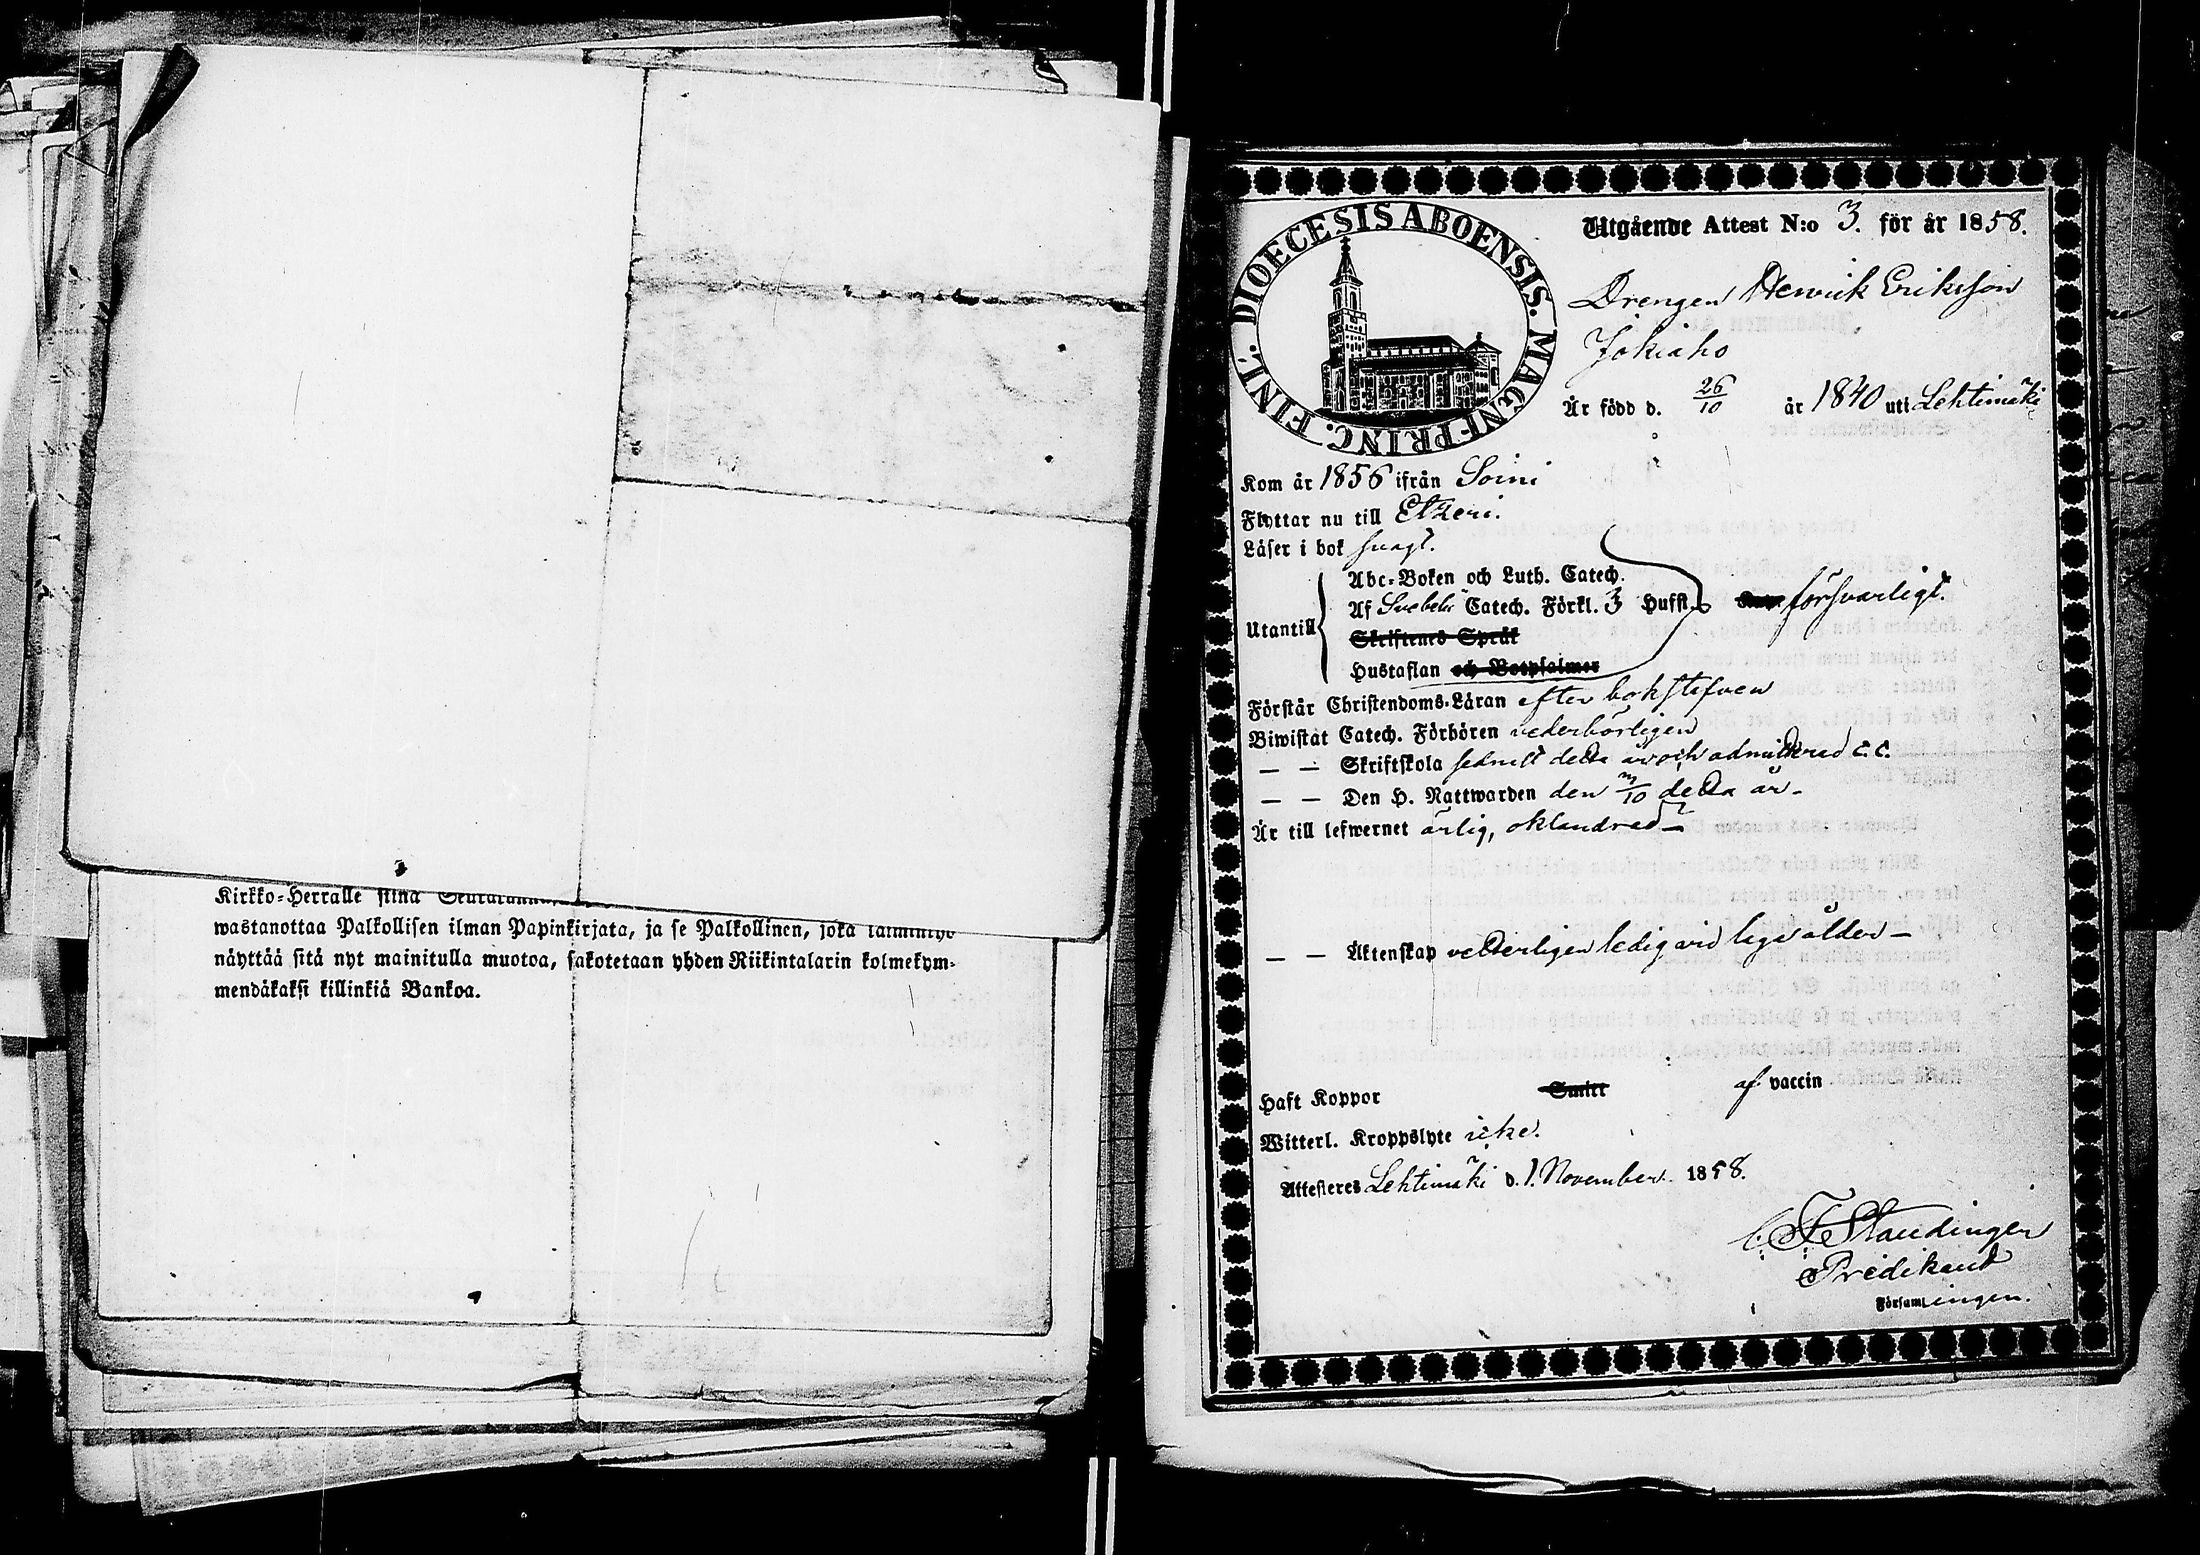 Kirkko-Herralle siinä
wastanottaa Palkollisen ilman Papinkirjata, ja se Palkollinen, joka laiminlyö
näyttää sitä nyt mainitulla muotoa, sakotetaan yhden Riikintalarin kolmekym-
mendäkaksi killinkiä Bankoa.
DIOECESIS ABOENSIS. MAGNI PRINC. FINL.
Utgående Attest N:o 3. för år 1858.
Drengen Henrik Eriksson
Jokiaho
Är född d. 26/10 år 1840 uti Lehtimäki
Kom år 1856 ifrån Soini
Flyttar nu till Etzeri.
Läser i bok svagt.
Abc-Boken och Luth. Catech.
Af Svebeli Catech. Förkl. 3 Hufst. försvarligt.
Utantill
Skriftenes Språk
Hustaflan och Botpsalmer
Förstår Christendoms-Läran efter bokstafven
Biwistat Catech. Förhören vederbörligen
— — Skriftskola sednast detta år och admitterad
— — Den H. Nattwarden den /10 detta år.
Är till lefwernet ärlig, oklandrad
— — Äktenskap vetterligen ledig vid laga ålder —
Haft Koppor Smitt af vaccin
Witterl. Kroppslyte icke.
Attesteres Lehtimäki d. 1. November 1858.
C. F. Standinger
Predikant
Församlingen.